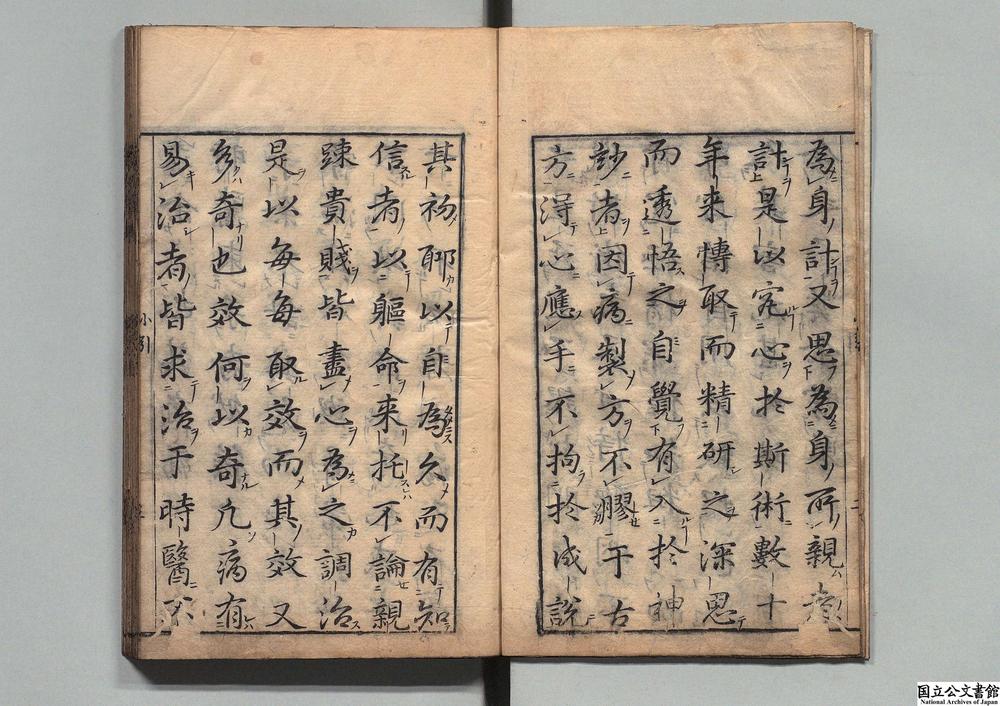 為身計又思為身所親者
計是以究心於斯術數十
年來慱取而精研之深思
而透悟之自覺有入於神
玅者因病製方不膠于古
方淂心應手不拘於成說
其初耶以自為久而有知
信者以軀命來托不論親
踈貴賤皆盡心為之調治
是以每每取效而其效又
多奇也效何以奇凢病有
易治者皆求治于時醫不
小引
国立公文書館
National Archives of Japan